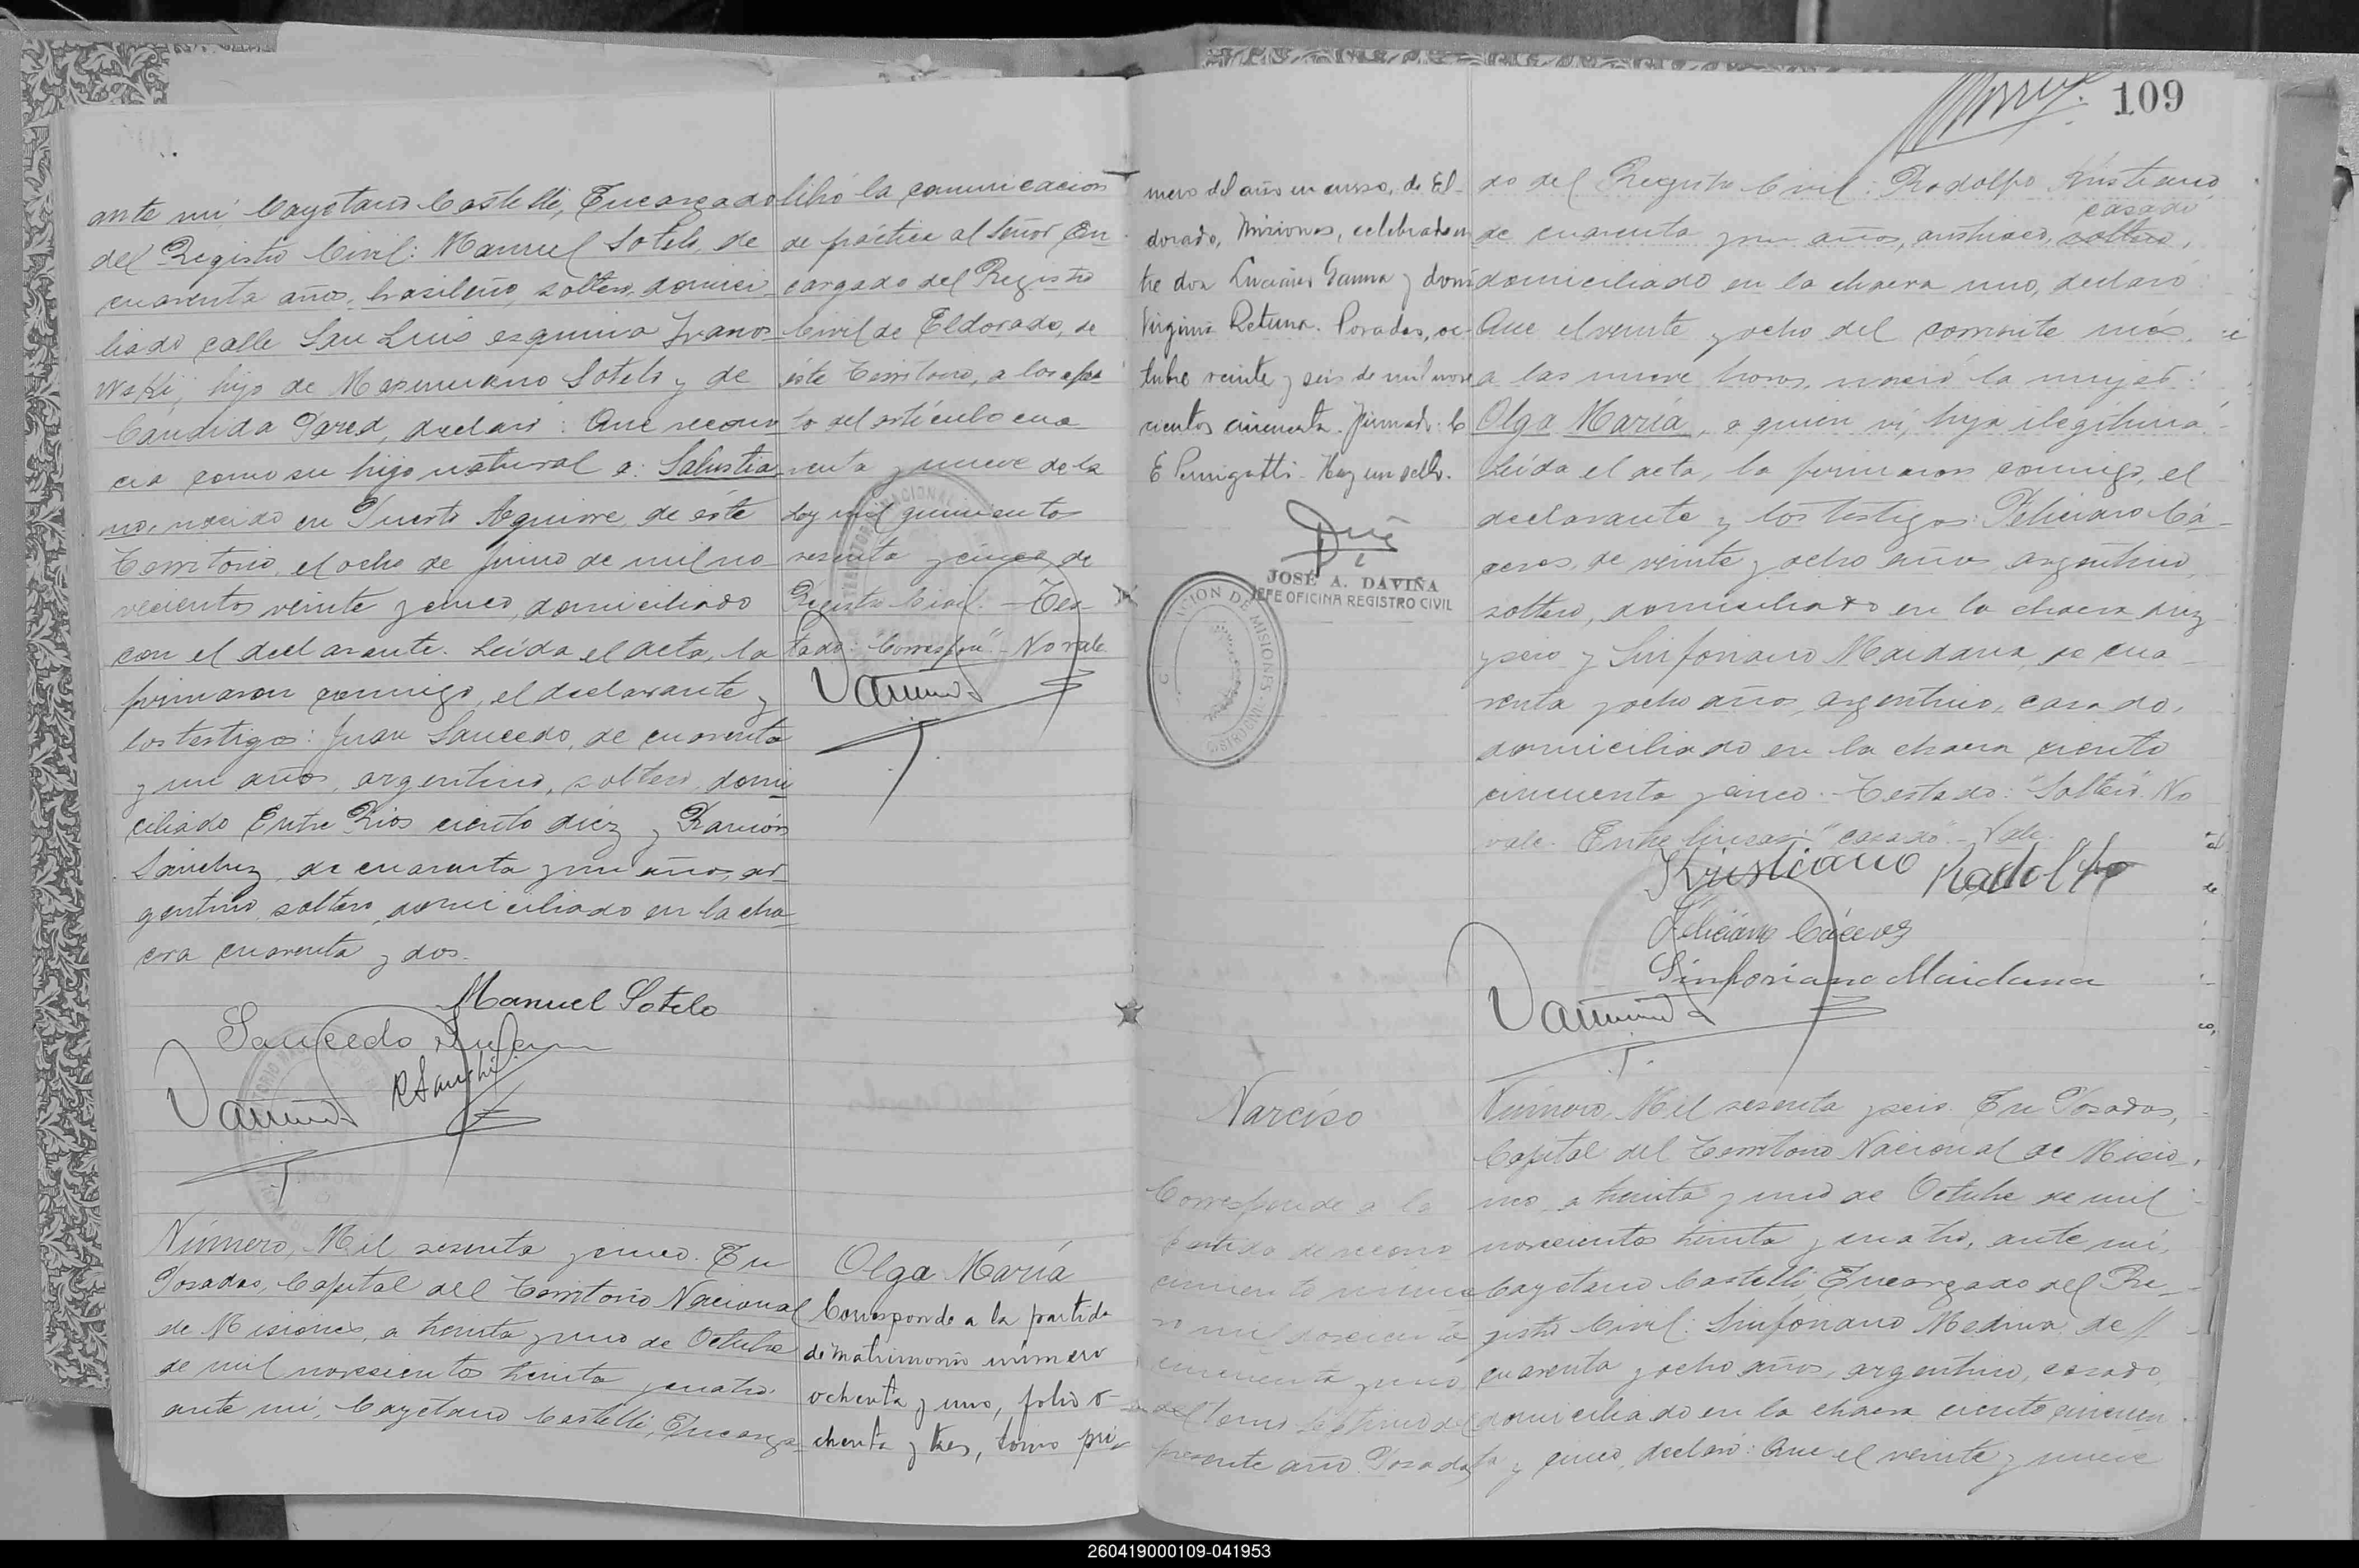 ante mi, Cayetano Castelli, Encargado
del Registro Civil: Manuel Sotelo, de
cuarenta años, brasileño, soltero, domici-
liado calle San Luis esquina Ivanos-
wski, hijo de Maximiano Sotelo y de
Candida Pared, declaró: Que recono-
cia como su hijo natural a: Salustia-
no, nacido en Puerto Aguirre, de éste
Territorio, el ocho de Junio de mil no-
vecientos veinte y cinco, domiciliado
con el declarante. Leida el acta, la
firmaron conmigo, el declarante y
los testigos: Juan Saucedo, de cuarenta
y un años, argentino, soltero, domi-
ciliado Entre Rios ciento diéz y Ramón
Sánchez, de cuarenta y un años, ar-
gentino, soltero, domiciliado en la cha-
cra cuarenta y dos.
Manuel Sotelo
Saucedo Juan
R Sanchi
libró la comunicacion
de práctica al Señor En-
cargado del Registro
Civil de Eldorado, de
éste Territorio, a los efec-
to del artículo cua-
renta y nueve de la
Ley mil quinientos
sesenta y cinco de
Registro Civil. Tes-
tado: "Correspon" - No vale.
Número, Mil sesenta y cinco. En
Posadas, Capital del Territorio Nacional
de Misiones, a treinta y uno de Octubre
de mil novecientos treinta y cuatro,
ante mi, Cayetano Castelli, Encarga-
Olga María
Corresponde a la partida
de matrimonio número
ochenta y uno, folio o-
chenta y tres, tomo pri-
109
mero del año en curso, de El-
dorado, Misiones, celebrado en-
tre don Luciano Gauna y doña
Virginia Retuna. Posadas, oc-
tubre veinte y seis de mil nove-
cientos cincuenta. Firmado: C
E Pernigotti - Hay un sello.
JOSÉ A. DAVIÑA
JEFE OFICINA REGISTRO CIVIL
do del Registro Civil: Rodolfo Kristiano,
casado
de cuarenta y un años, austriaco, soltero,
domiciliado en la chacra uno, declaró:
Que el veinte y ocho del corriente més,
a las nueve horas, nació la mujer:
Olga María, a quién ví, hija ilegítima.
Leída el acta, la firmaron conmigo, el
declarante y los testigos: Feliciano Cá-
ceres, de veinte y ocho años, argentino,
soltero, domiciliado en la chacra diez
y seis y Sinforiano Maidana, de cua-
renta y ocho años, argentino, casado,
domiciliado en la chacra ciento
cincuenta y cinco. Testado: "Soltero" No
vale. Entre lineas: "casado" - Vale.
Kristiano Radolfo
Feliciano Cáceres
Sinforiano Maidana
Narciso
Corresponde a la
partida de recono
cimiento núme
ro mil doscientos
cincuenta y uno,
del tomo séptimo del
presente año. Posadas
Número, Mil sesenta y seis. En Posadas,
Capital del Territorio Nacional de Misio-
nes, a treinta y uno de Octubre de mil
novecientos treinta y cuatro, ante mi,
Cayetano Castelli, Encargado del Re-
gistro Civil: Sinforiano Medina, de //
cuarenta y ocho años, argentino, casado,
domiciliado en la chacra ciento cincuen-
ta y cinco, declaró: Que el veinte y nueve
260419000109-041953